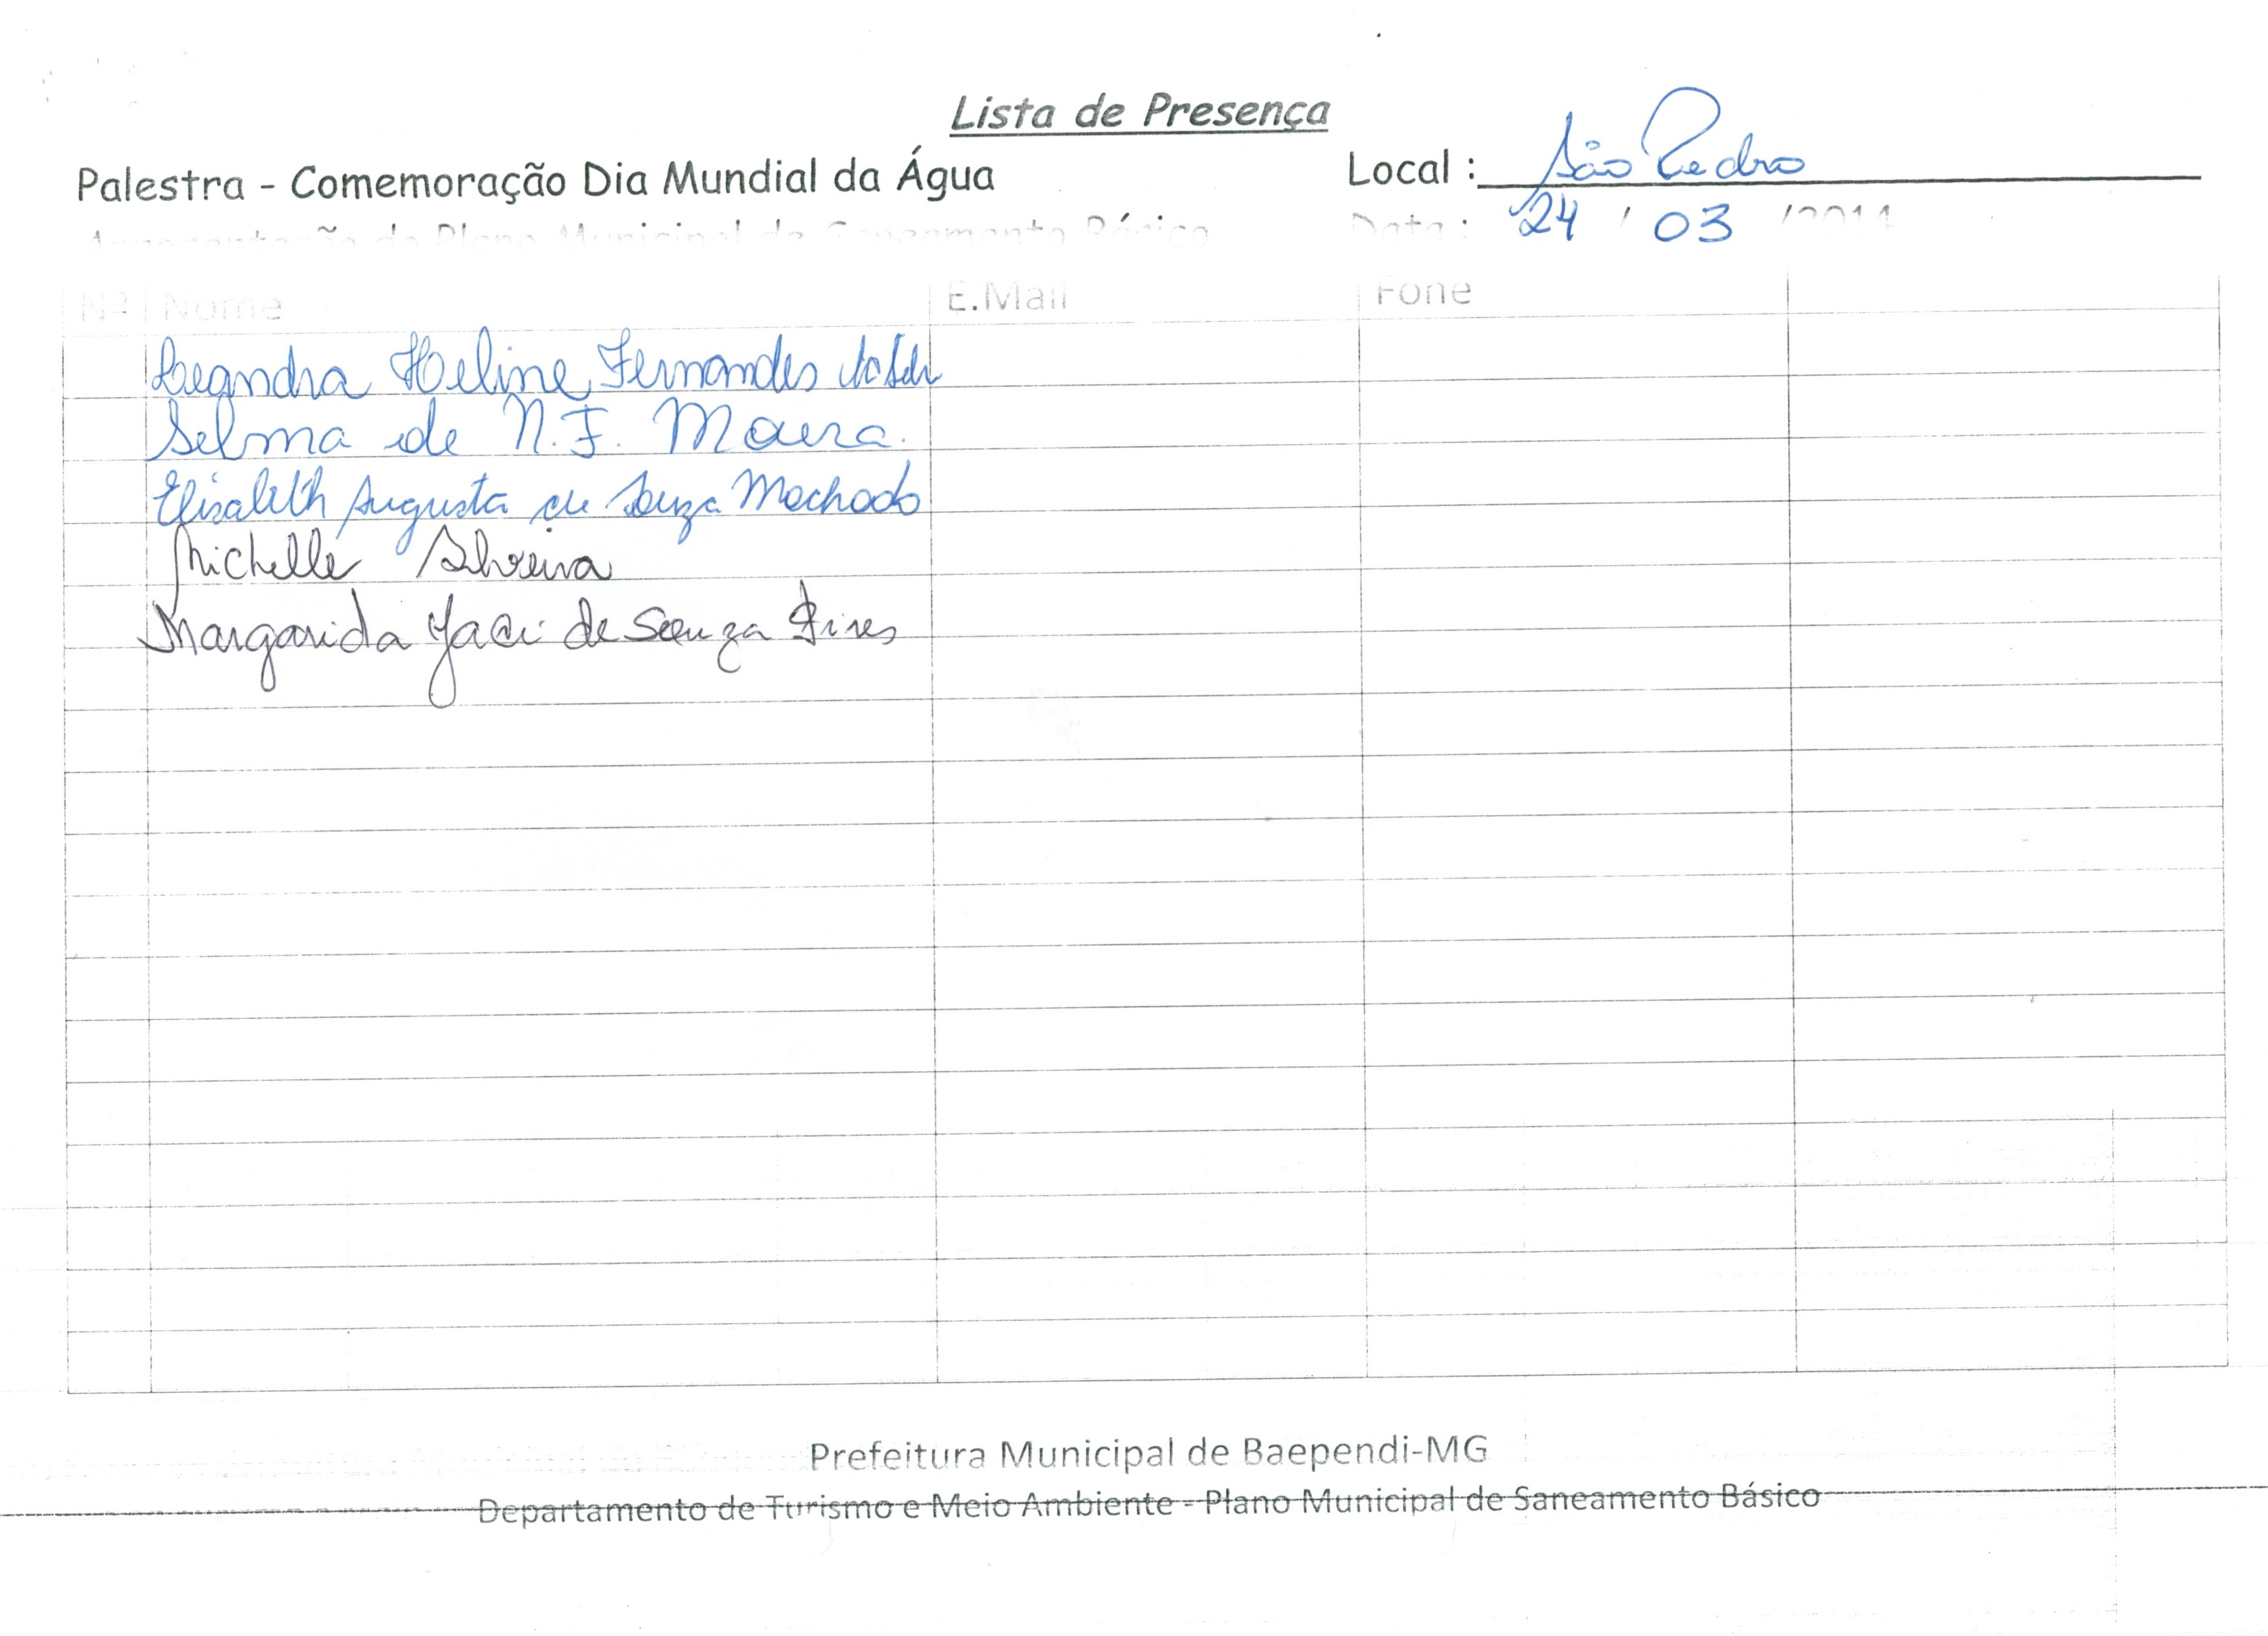 Lista de Presença
Palestra - Comemoração Dia Mundial da Água
Local : São Pedro
Apresentação do Plano Municipal de Saneamento Básico
Data : 24 / 03 /2014
Nº Nome E.Mail Fone
Leandra Heline Fernandes
Selma de N. F. Moura.
Elisabeth Augusta de Souza Machado
Michelle Silveira
Margarida Jaci de Souza Pires
Prefeitura Municipal de Baependi-MG
Departamento de Turismo e Meio Ambiente - Plano Municipal de Saneamento Básico